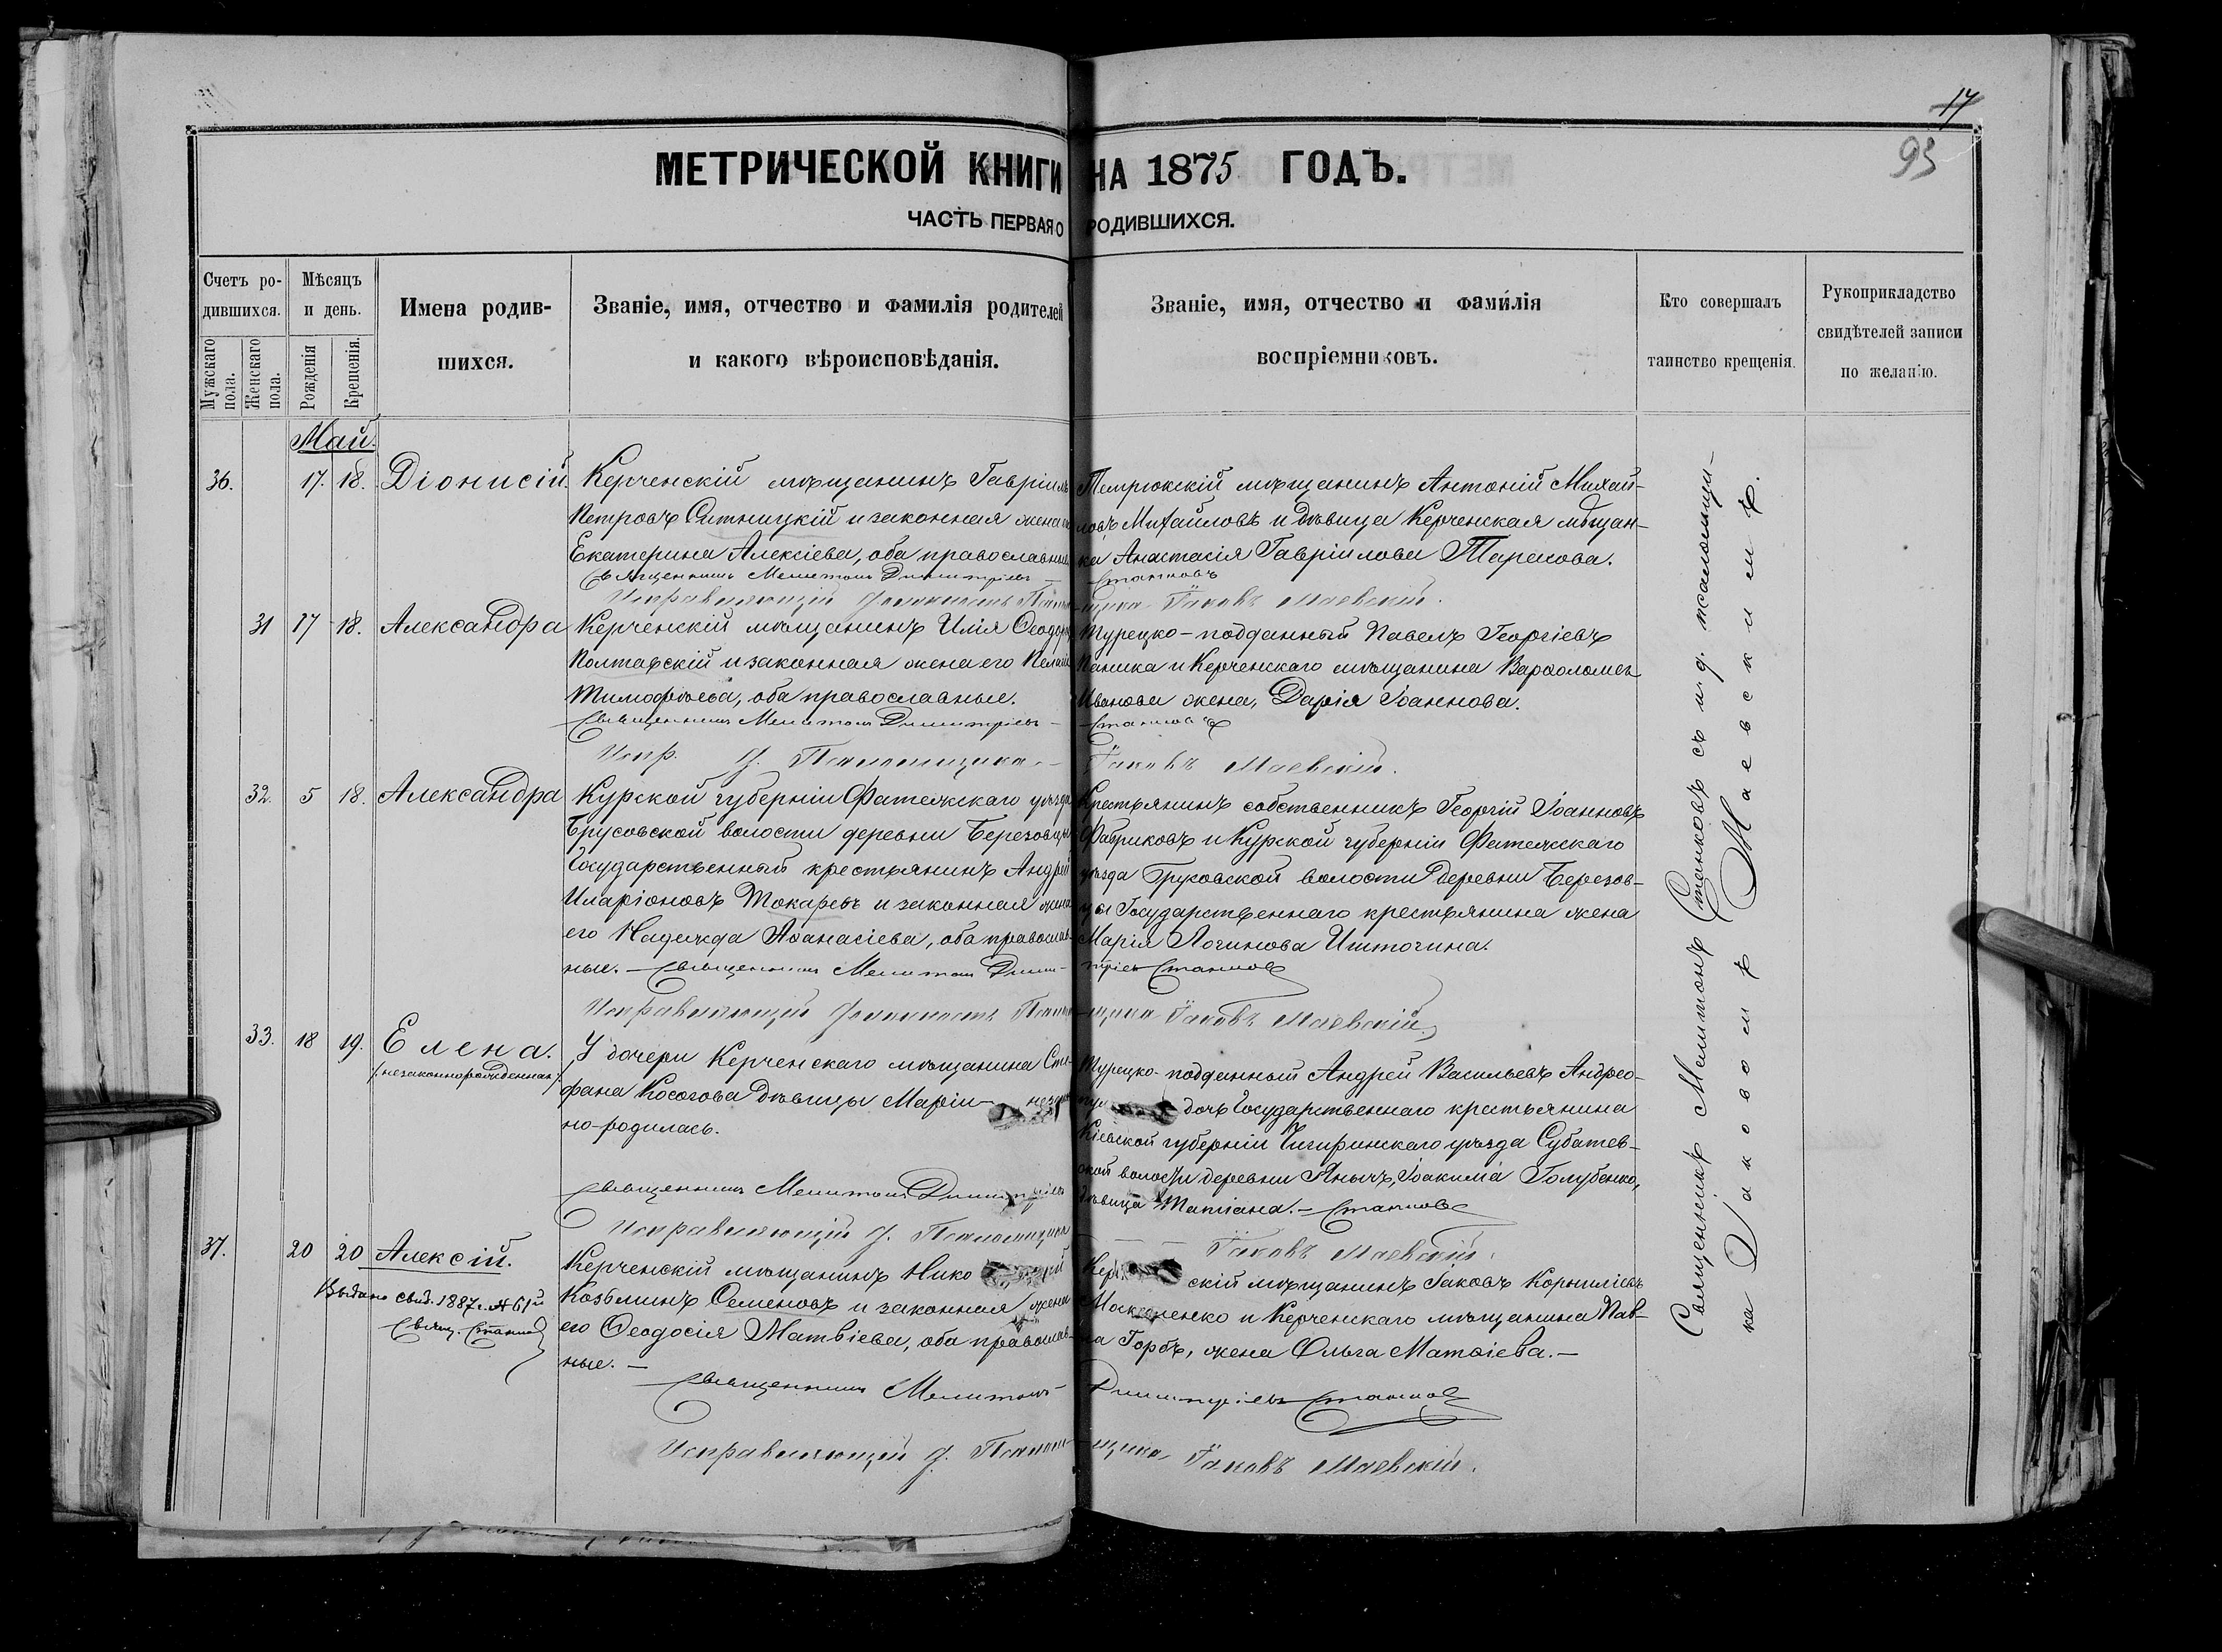 17
93
МЕТРИЧЕСКОЙ КНИГИ НА 1875 ГОДЪ.
ЧАСТЬ ПЕРВАЯ О РОДИВШИХСЯ.
Счетъ ро-
дившихся.
Мужскаго пола.
Женскаго пола.
Мѣсяцъ
и день.
Рожденія
Крещенія.
Имена родив-
шихся.
Званіе, имя, отчество и фамилія родителей
и какого вѣроисповѣданія.
Званіе, имя, отчество и фамилія
воспріемниковъ.
Кто совершалъ
таинство крещенія.
Рукоприкладство
свидѣтелей записи
по желанію.
Май.
36. 17. 18. Діонисій.
Керченскій мѣщанинъ Гавріилъ
Петровъ Ситницкій и законная жена его
Екатерина Алексіева, оба православные
Священникъ Мелитонъ Димитріевъ
Исправляющій должность Псалом
Темрюкскій мѣщанинъ Антоній Михай-
ловъ Михайловъ и дѣвица Керченская мѣщан-
ка Анастасія Гавріилова Тарасова.
Станковъ
щика Іаковъ Маевскій.
31 17 18. Александра
Керченскій мѣщанинъ Илія Ѳеодоровъ
Полтавскій и законная жена его Пелагія
Тимоѳѣева, оба православные.
Священникъ Мелитонъ Димитріевъ
Испр. д. Псаломщика
Турецко-подданный Павелъ Георгіевъ
Паника и Керченскаго мѣщанина Варѳоломея
Иванова жена, Дарія Іоаннова.
Станковъ
Іаковъ Маевскій.
32. 5 18. Александра
Курской губерніи Фатежскаго уѣзда
Брусовской волости деревни Березовцы
Государственный крестьянинъ Андрей
Иларіоновъ Токаревъ и законная жена
его Надежда Аѳанасіева, оба православ-
ные. — Священникъ Мелитонъ Дими-
Исправляющій должность Псалом
Крестьянинъ собственникъ Георгій Іоанновъ
Фабриковъ и Курской губерніи Фатежскаго
уѣзда Брусовской волости деревни Березов-
цы Государственнаго крестьянина жена
Марія Логинова
тріевъ Станковъ
щика Іаковъ Маевскій.
33. 18 19. Елена.
/незаконнорожденная/
У дочери Керченскаго мѣщанина Сте-
фана Косогова дѣвицы Маріи незакон
но-родилась.
Священникъ Мелитонъ Димитріевъ
Исправляющій д. Псаломщика
Турецко-подданный Андрей Васильевъ Андрео-
дочь Государственнаго крестьянина
Кіевской губерніи Чигиринскаго уѣзда Субатев-
ской волости деревни Іоакима Голубенко,
дѣвица Татіана. — Станковъ
Іаковъ Маевскій.
37. 20 20 Алексій.
Выдано свид. 1887 г. № 61й
Свящ. Станковъ
Керченскій мѣщанинъ Нико
Козьминъ Семеновъ и законная жена
его Ѳеодосія Матвіева, оба православ-
ные. —
Священникъ Мелитонъ
Исправляющій д. Псалом-
скій мѣщанинъ Іаковъ Корниліевъ
и Керченскаго мѣщанина Пав-
ла Горбъ, жена Ольга Матвіева. —
Димитріевъ Станковъ
щика Іаковъ Маевскій.
Священникъ Мелитонъ Станковъ съ и. д. псаломщи-
ка Іаковомъ Маевскимъ.